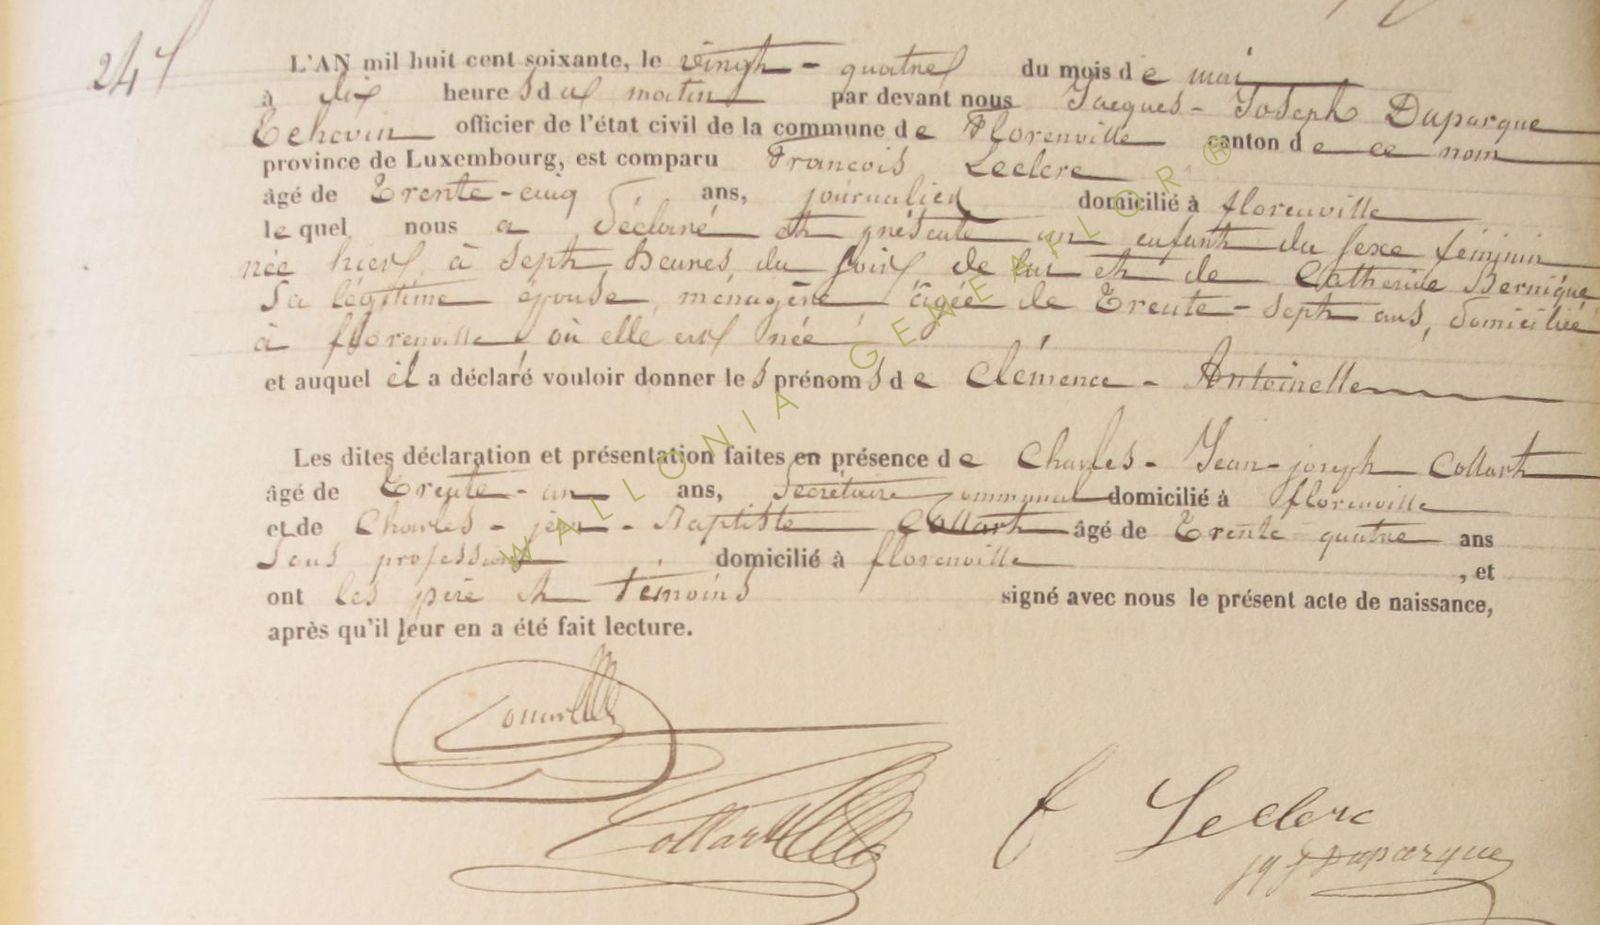 24
L'AN mil huit cent soixante, le vingt-quatre du mois de mai
à dix heures du matin par devant nous Jacques-Joseph Duparque
Echevin officier de l'état civil de la commune de Florenville canton de ce nom
province de Luxembourg, est comparu François Leclerc
âgé de Trente-cinq ans, journalier domicilié à florenville
lequel nous a déclaré et présenté un enfant du sexe féminin
née hier, à sept heures, du soir de lui et de Catherine Bernique
Sa légitime épouse, ménagère, âgée de Trente-sept ans, domiciliée
à florenville où elle est née
et auquel il a déclaré vouloir donner les prénoms de Clémence-Antoinette
Les dites déclaration et présentation faites en présence de Charles-Jean-joseph Collart
âgé de Trente-un ans, Secrétaire communal domicilié à florenville
et de Charles-jean-Baptiste Collart âgé de Trente quatre ans
Sans profession domicilié à florenville , et
ont les père et témoins signé avec nous le présent acte de naissance,
après qu'il leur en a été fait lecture.
Collart
F Leclerc
JqJ Duparque
WALLONIA GENEALOR ®